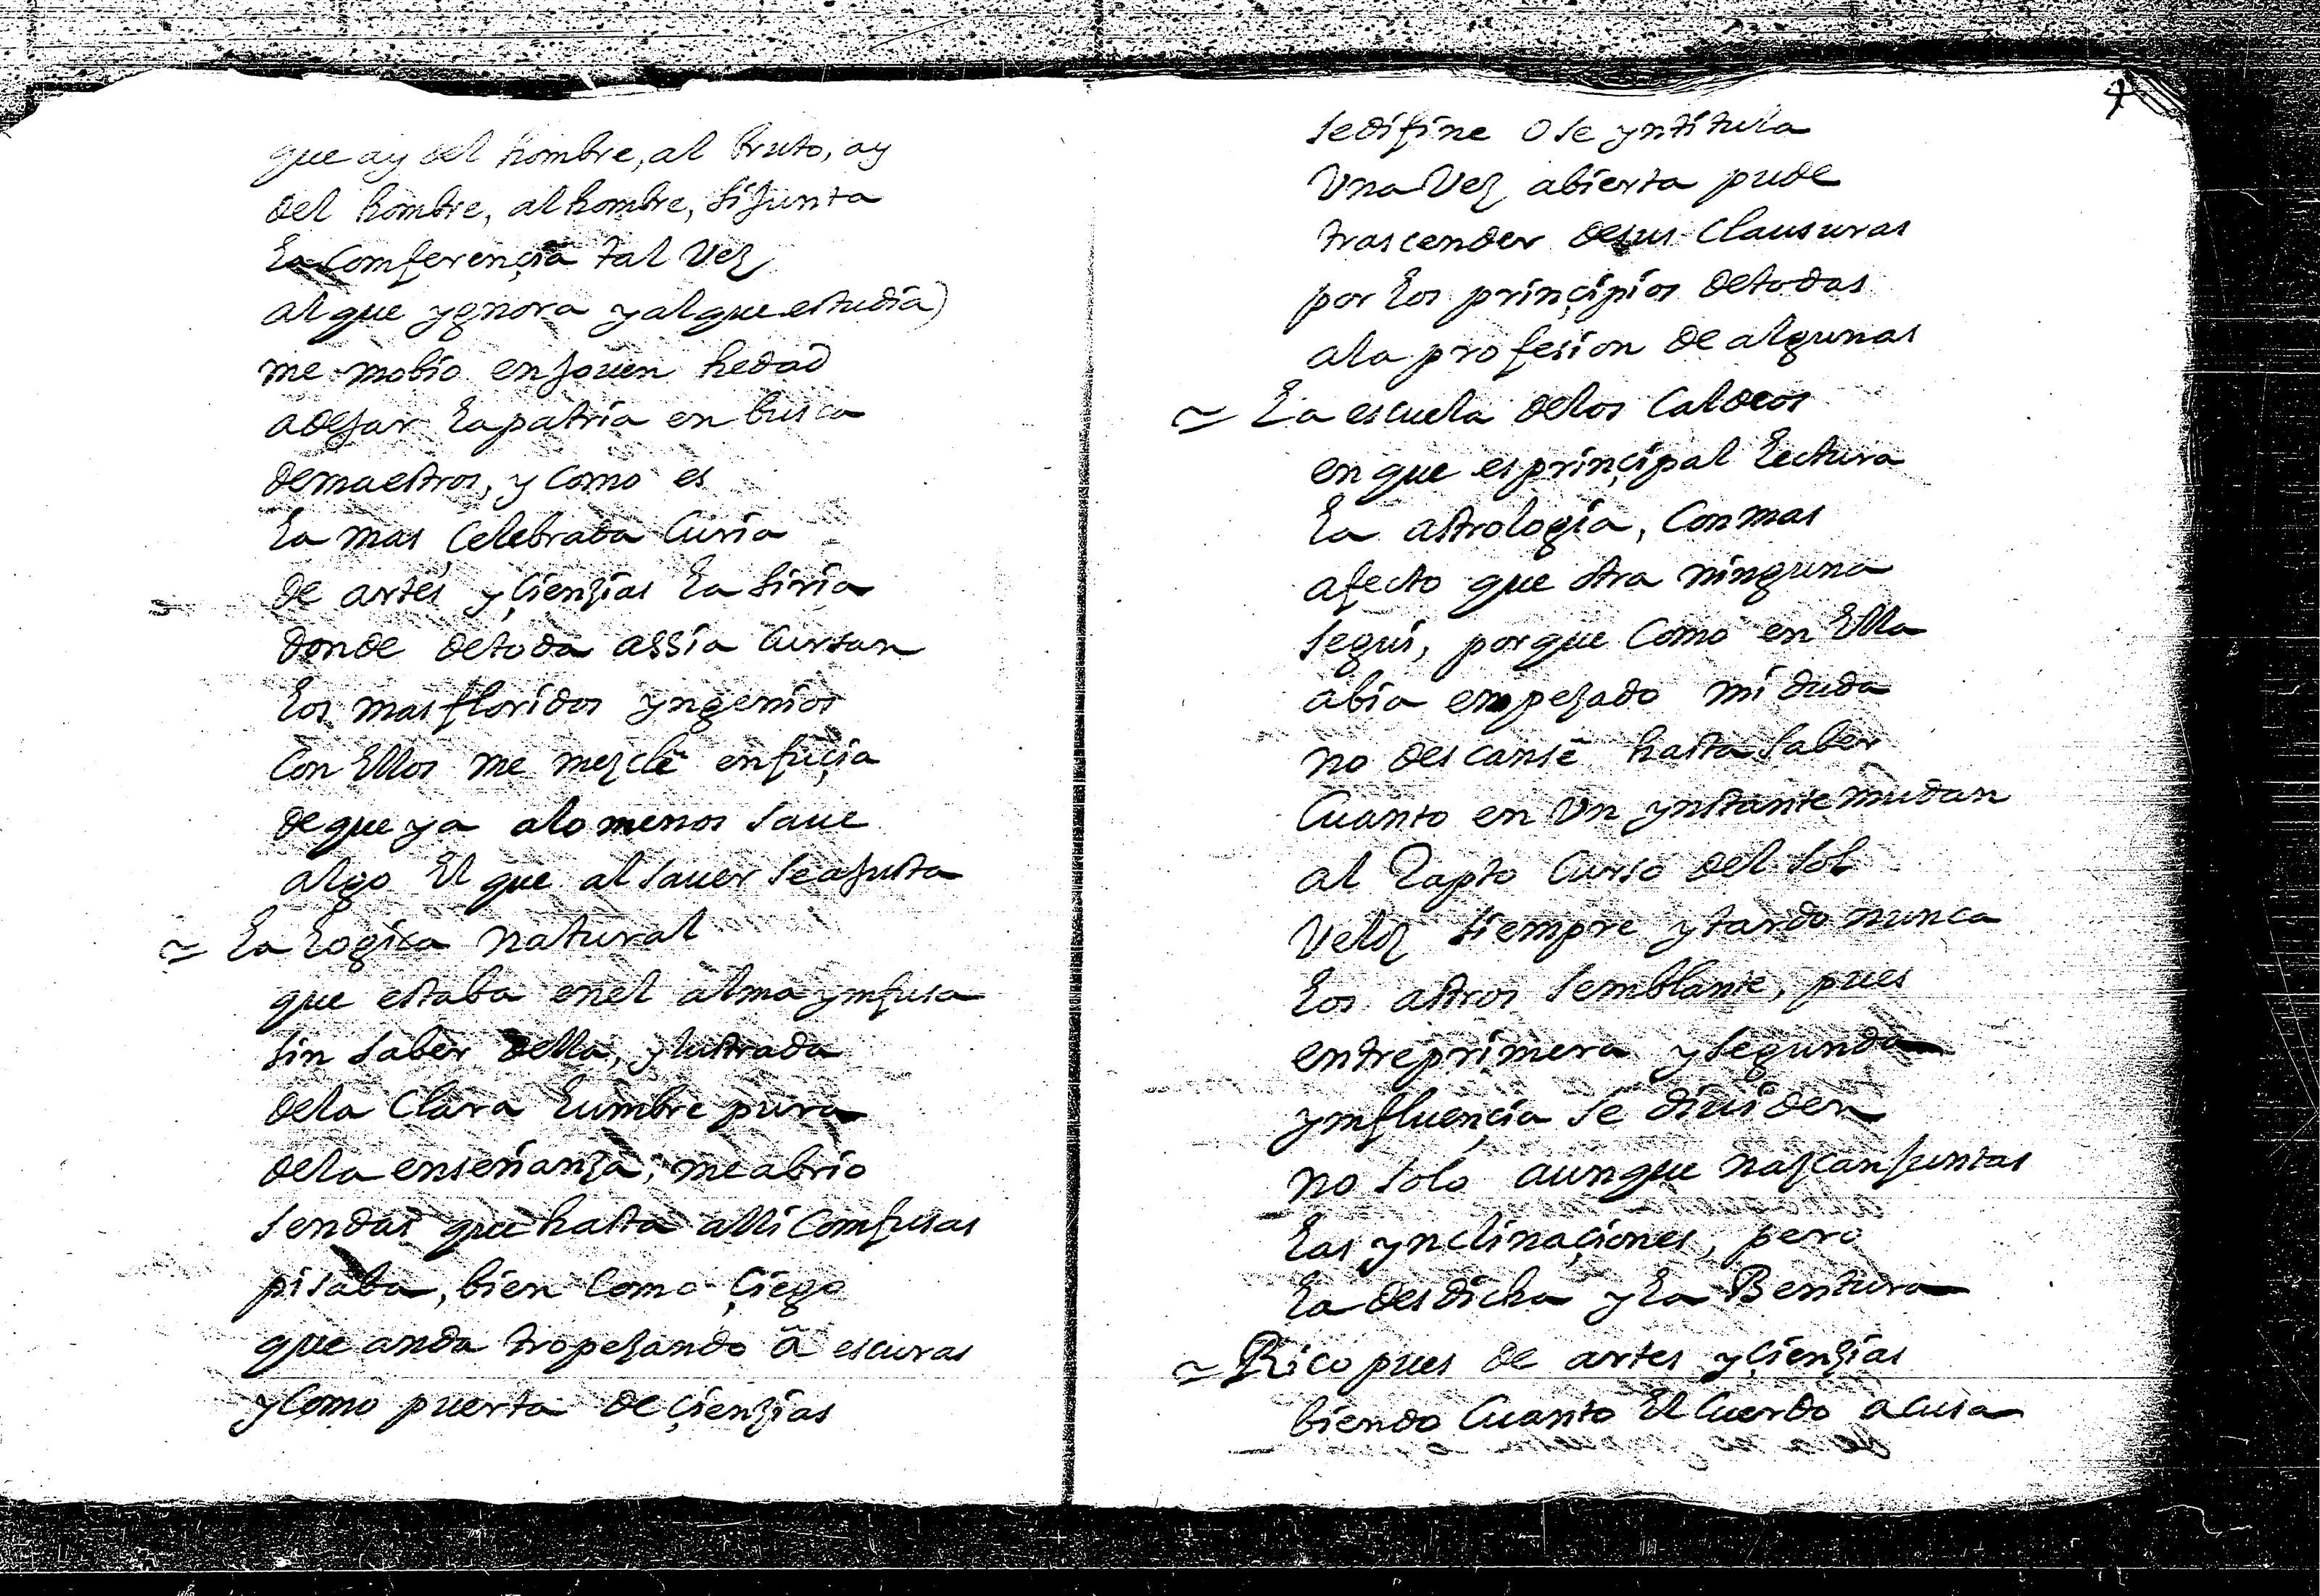 que ay del hombre, al bruto, ay
del hombre, al hombre, si junta
la comferençia tal vez
al que ygnora y al que estudia)
me mobio en jouen hedad
a dejar la patria en busca
de maestros, y como es
la mas çelebrada curia
de artes y çienzias la siria
donde de toda assia cursan
los mas floridos yngenios
con ellos me mezclê en fuçia
de que ya alo menos saue
algo el que al sauer se ajusta
~ la logica natural
que estaba en el alma ymfusa
sin saber della, ylustrada
dela clara lumbre pura
dela enseñanza, me abrio
sendas que hasta alli comfusas
pisaba, bien como çiego
que anda tropezando â escuras
y como puerta de çienzias
4
se difine o se yntitula
una vez abierta pude
trascender de sus clausuras
por los prinçipios de todas
ala profesion de algunas
~ La escuela delos caldeos
en que es prinçipal lectura
la astrologia, con mas
afecto que otra ninguna
segui, porque como en ella
abia empezado mi duda
no descansê hasta saber
cuanto en un ynstante mudan
al rapto curso del sol
veloz siempre y tardo nunca
los astros semblante, pues
entre primera y segunda
ymfluençia se diuiden
no solo aunque nazcan juntas
las ynclinaçiones, pero
la desdicha y la Bentura
~ Rico pues de artes y çienzias
biendo cuanto el cuerdo acusa